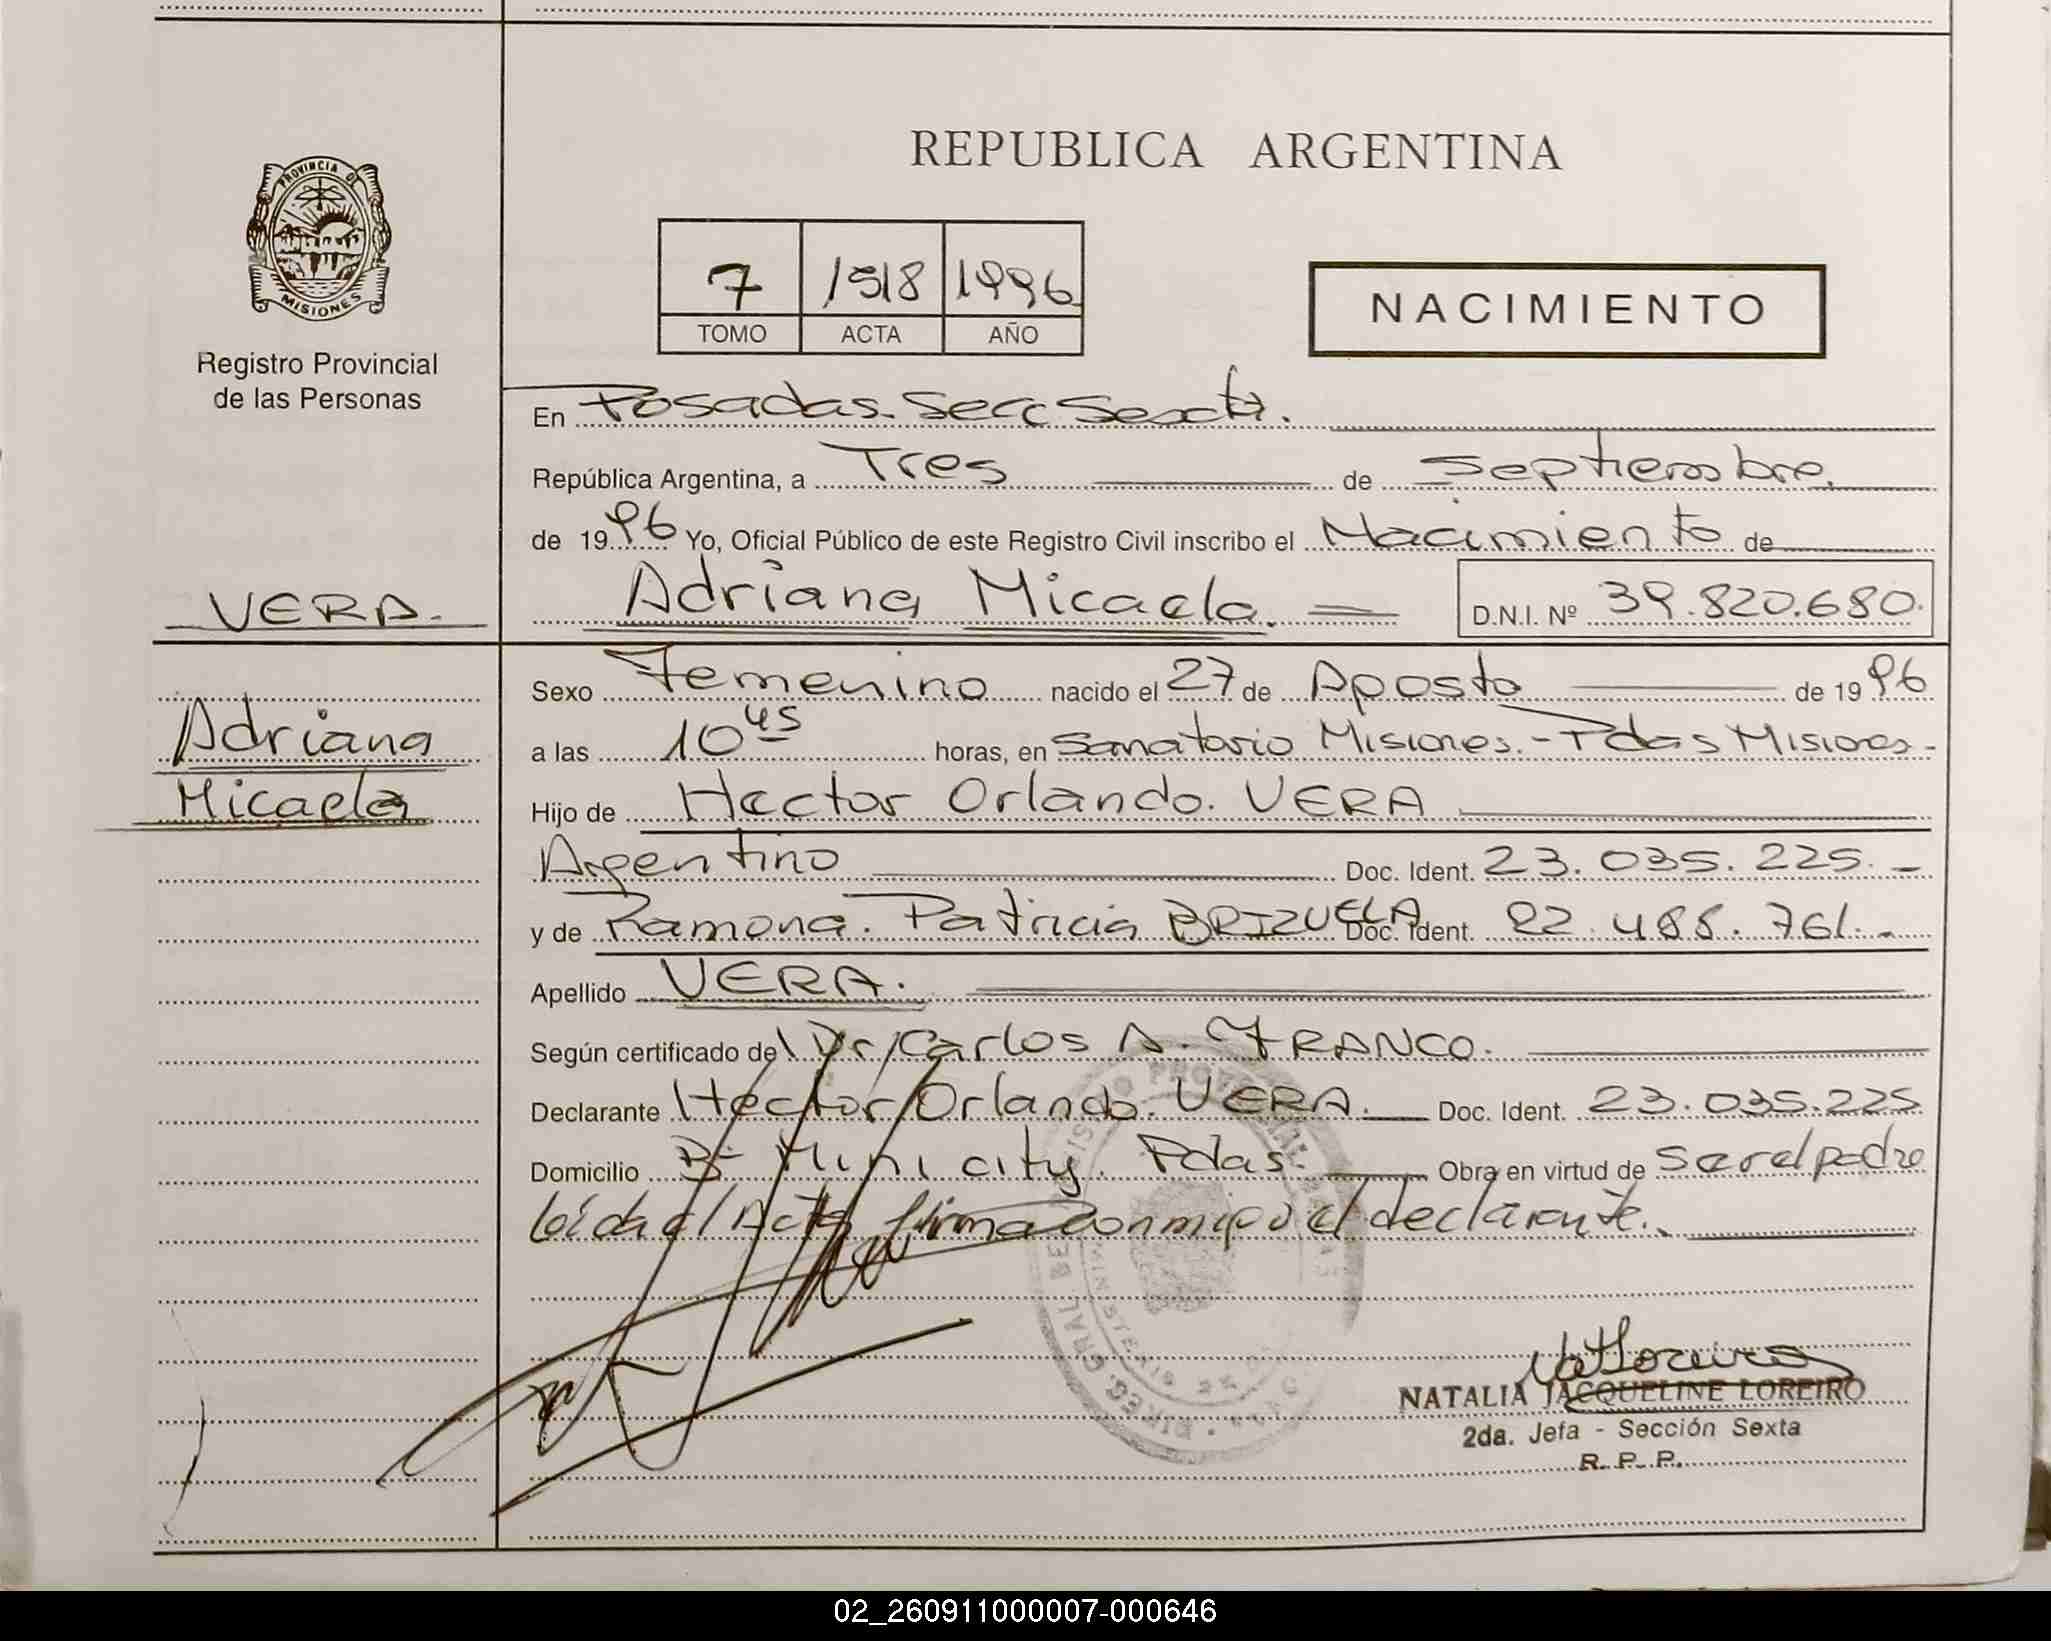 REPUBLICA ARGENTINA
PROVINCIA DE
MISIONES
Registro Provincial
de las Personas
7 1518 1996
TOMO ACTA AÑO
NACIMIENTO
En Posadas. Secc Sexta.
República Argentina, a Tres de Septiembre
de 1996 Yo, Oficial Público de este Registro Civil inscribo el Nacimiento de
VERA.
Adriana Micaela. D.N.I. Nº 39.820.680.
Adriana
Micaela
Sexo Femenino nacido el 27 de Agosto de 1996
a las 10 45 horas, en Sanatorio Misiones.- Pdas Misiones-
Hijo de Hector Orlando. VERA
Argentino Doc. Ident. 23.035.225.-
y de Ramona. Patricia BRIZUELA Doc. Ident. 22.488.761.-
Apellido VERA.
Según certificado de Dr/Carlos A. FRANCO.
Declarante Héctor Orlando. VERA. Doc. Ident. 23.035.225
Domicilio Bº Mini city. Pdas. Obra en virtud de ser el padre
Leída el Acta firma conmigo el declarante.
NATALIA JACQUELINE LOREIRO
2da. Jefa - Sección Sexta
R. P. P.
02_260911000007-000646